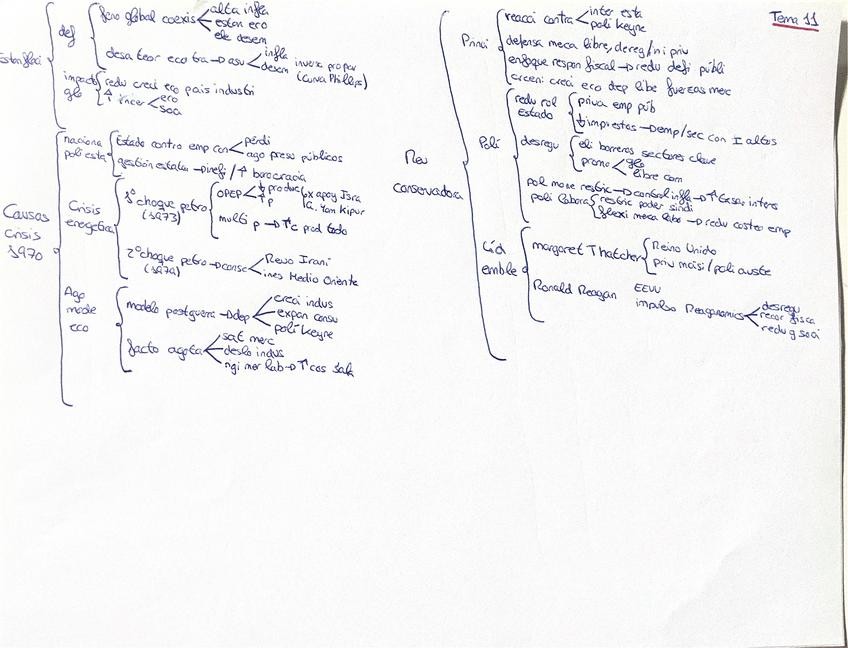 Tema 11
def
feno global coexis
alta infla
estan eco
ele desem
desa teor eco tra → asu
infla
desem
invers propor
(Curva Phillips)
impacto
glo
redu creci eco pais industri
↑ incer
eco
soci
Causas
crisis
1970
naciona
poli esta
Estado contro emp con
pérdi
ago presu públicos
gestión estatal → inefi / ↑ burocracia
Crisis
energética
1º choque petro
(1973)
OPEP
↓ produc
↑ p
x apoy Isra
G. Yom Kipur
multi p → ↑c prod todo
2º choque petro → consc
(1979)
Revo Irani
ines Medio Oriente
Ago
mode
eco
modelo postguerra → dep
creci indus
expan consu
polí keyne
facto agota
sat merc
deslo indus
rigi mer lab → ↑ cos sala
Neo
conservadora
Princi
reacci contra
inter esta
poli keyne
defensa meca libre, dereg/ni priv
enfoque respon fiscal → redu defi públi
creci eco dep libe fuerzas merc
Polí
redu rol
Estado
priva emp púb
↓ impuestos → emp/sec con I altos
desregu
eli barreras sectores clave
promo
glo
libre com
pol mone restric → control infla → ↑ tasa interes
poli labora
restric poder sindi
flexi meca labo → redu costes emp
Lid
emble
margaret Thatcher
Reino Unido
priv masi/poli auste
Ronald Reagan
EEUU
impulso Reaganomics
desregu
recor fisca
redu g soci